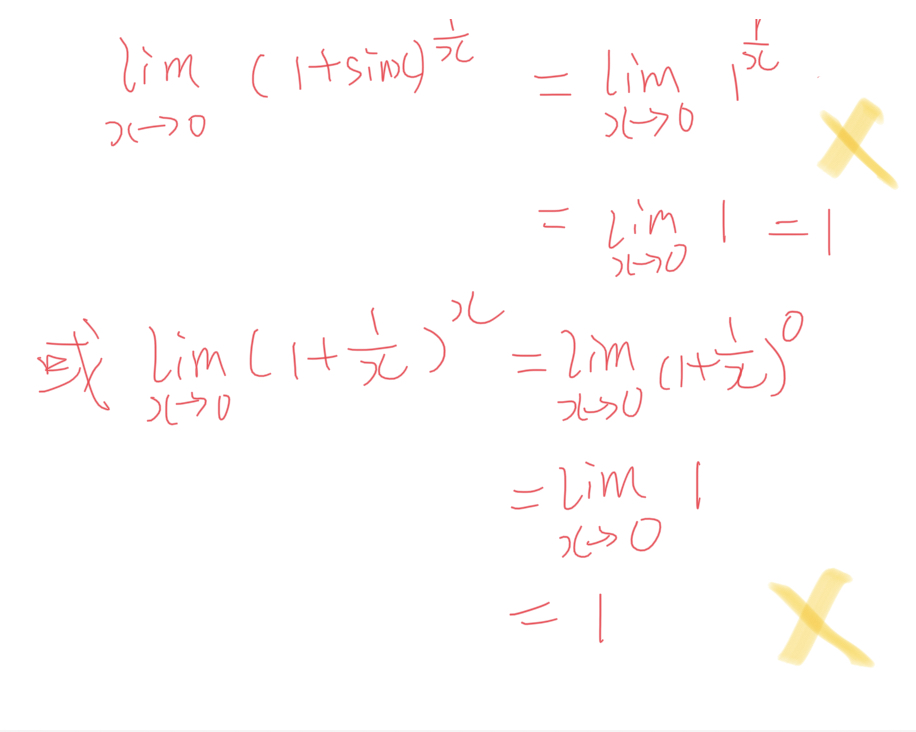 lim x→0 (1+sinx)^(1/x) = lim x→0 1^(1/x)
= lim x→0 1 = 1
或 lim x→0 (1+1/x)^x = lim x→0 (1+1/x)^0
= lim x→0 1
= 1